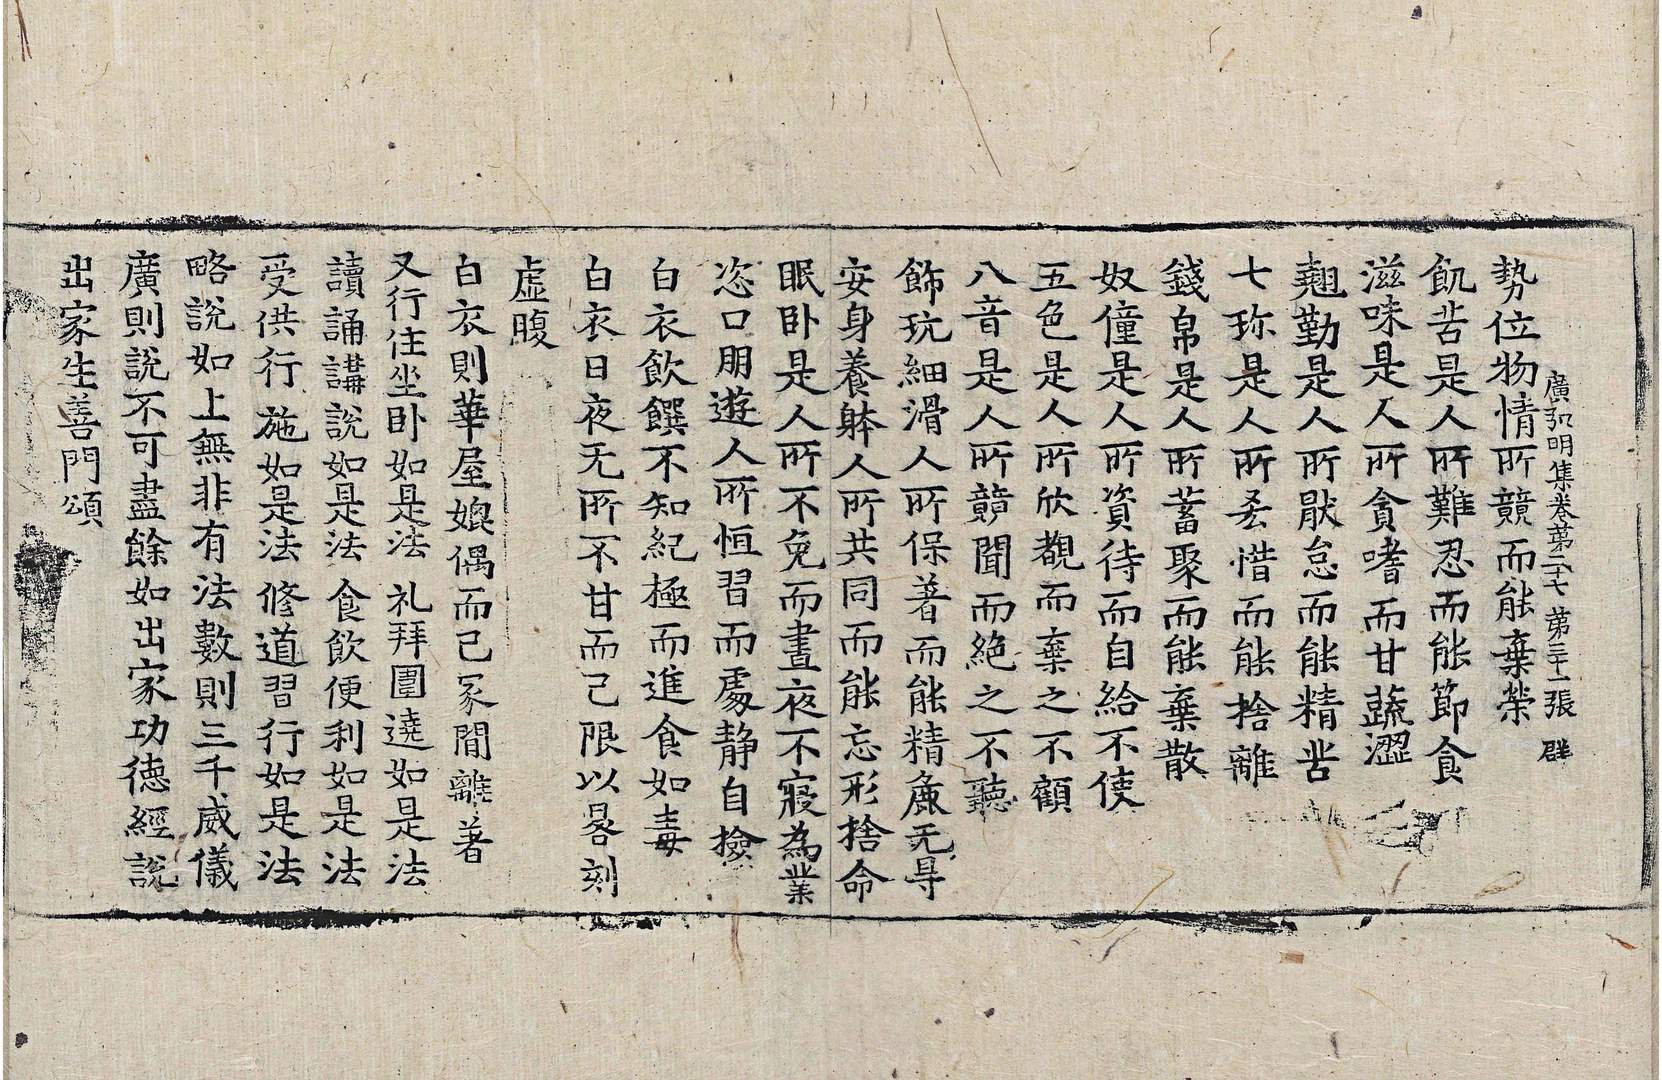 廣弘明集卷第二十七 第三十二張 群
勢位物情所競而能棄榮
飢苦是人所難忍而能節食
滋味是人所貪嗜而甘蔬澀
翹勤是人所猒怠而能精苦
七珎是人所悋惜而能捨離
錢帛是人所蓄聚而能棄散
奴僮是人所資待而自給不使
五色是人所欣覩而棄之不顧
八音是人所競聞而絕之不聽
飾玩細滑人所保著而能精麁无㝵
安身養躰人所共同而能忘形捨命
眠卧是人所不免而晝夜不寢為業
恣口朋遊人所恒習而處静自撿
白衣飲饌不知紀極而進食如毒
白衣日夜无所不甘而己限以晷刻
虛腹
白衣則華屋媲偶而己冢間離著
又行住坐卧如是法 礼拜圍遶如是法
讀誦講說如是法 食飲便利如是法
受供行施如是法 修道習行如是法
略說如上無非有法數則三千威儀
廣則說不可盡餘如出家功德經說
出家生善門頌